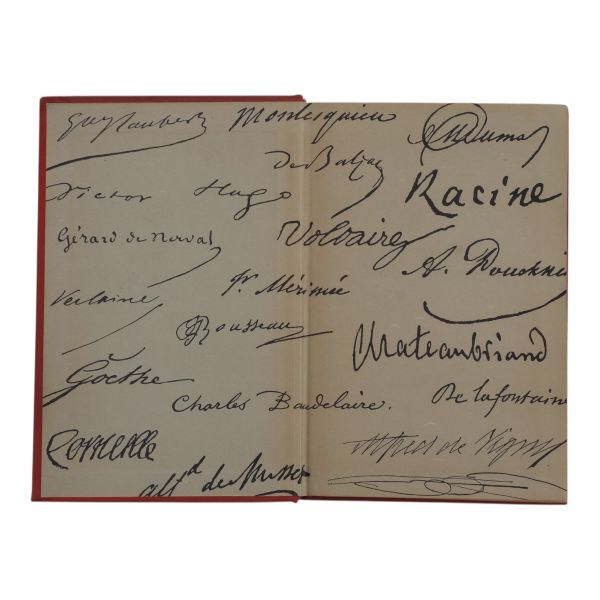 GusFlaubert
Montesquieu
ADumas
de Balzac
Victor Hugo
Racine
Gérard de Nerval
Voltaire
A. Pouchkine
Verlaine
Pr Mérimée
JJRousseau
Chateaubriand
Goethe
Charles Baudelaire.
De Lafontaine
Corneille
Alfred de Vigny
Alfd de Musset